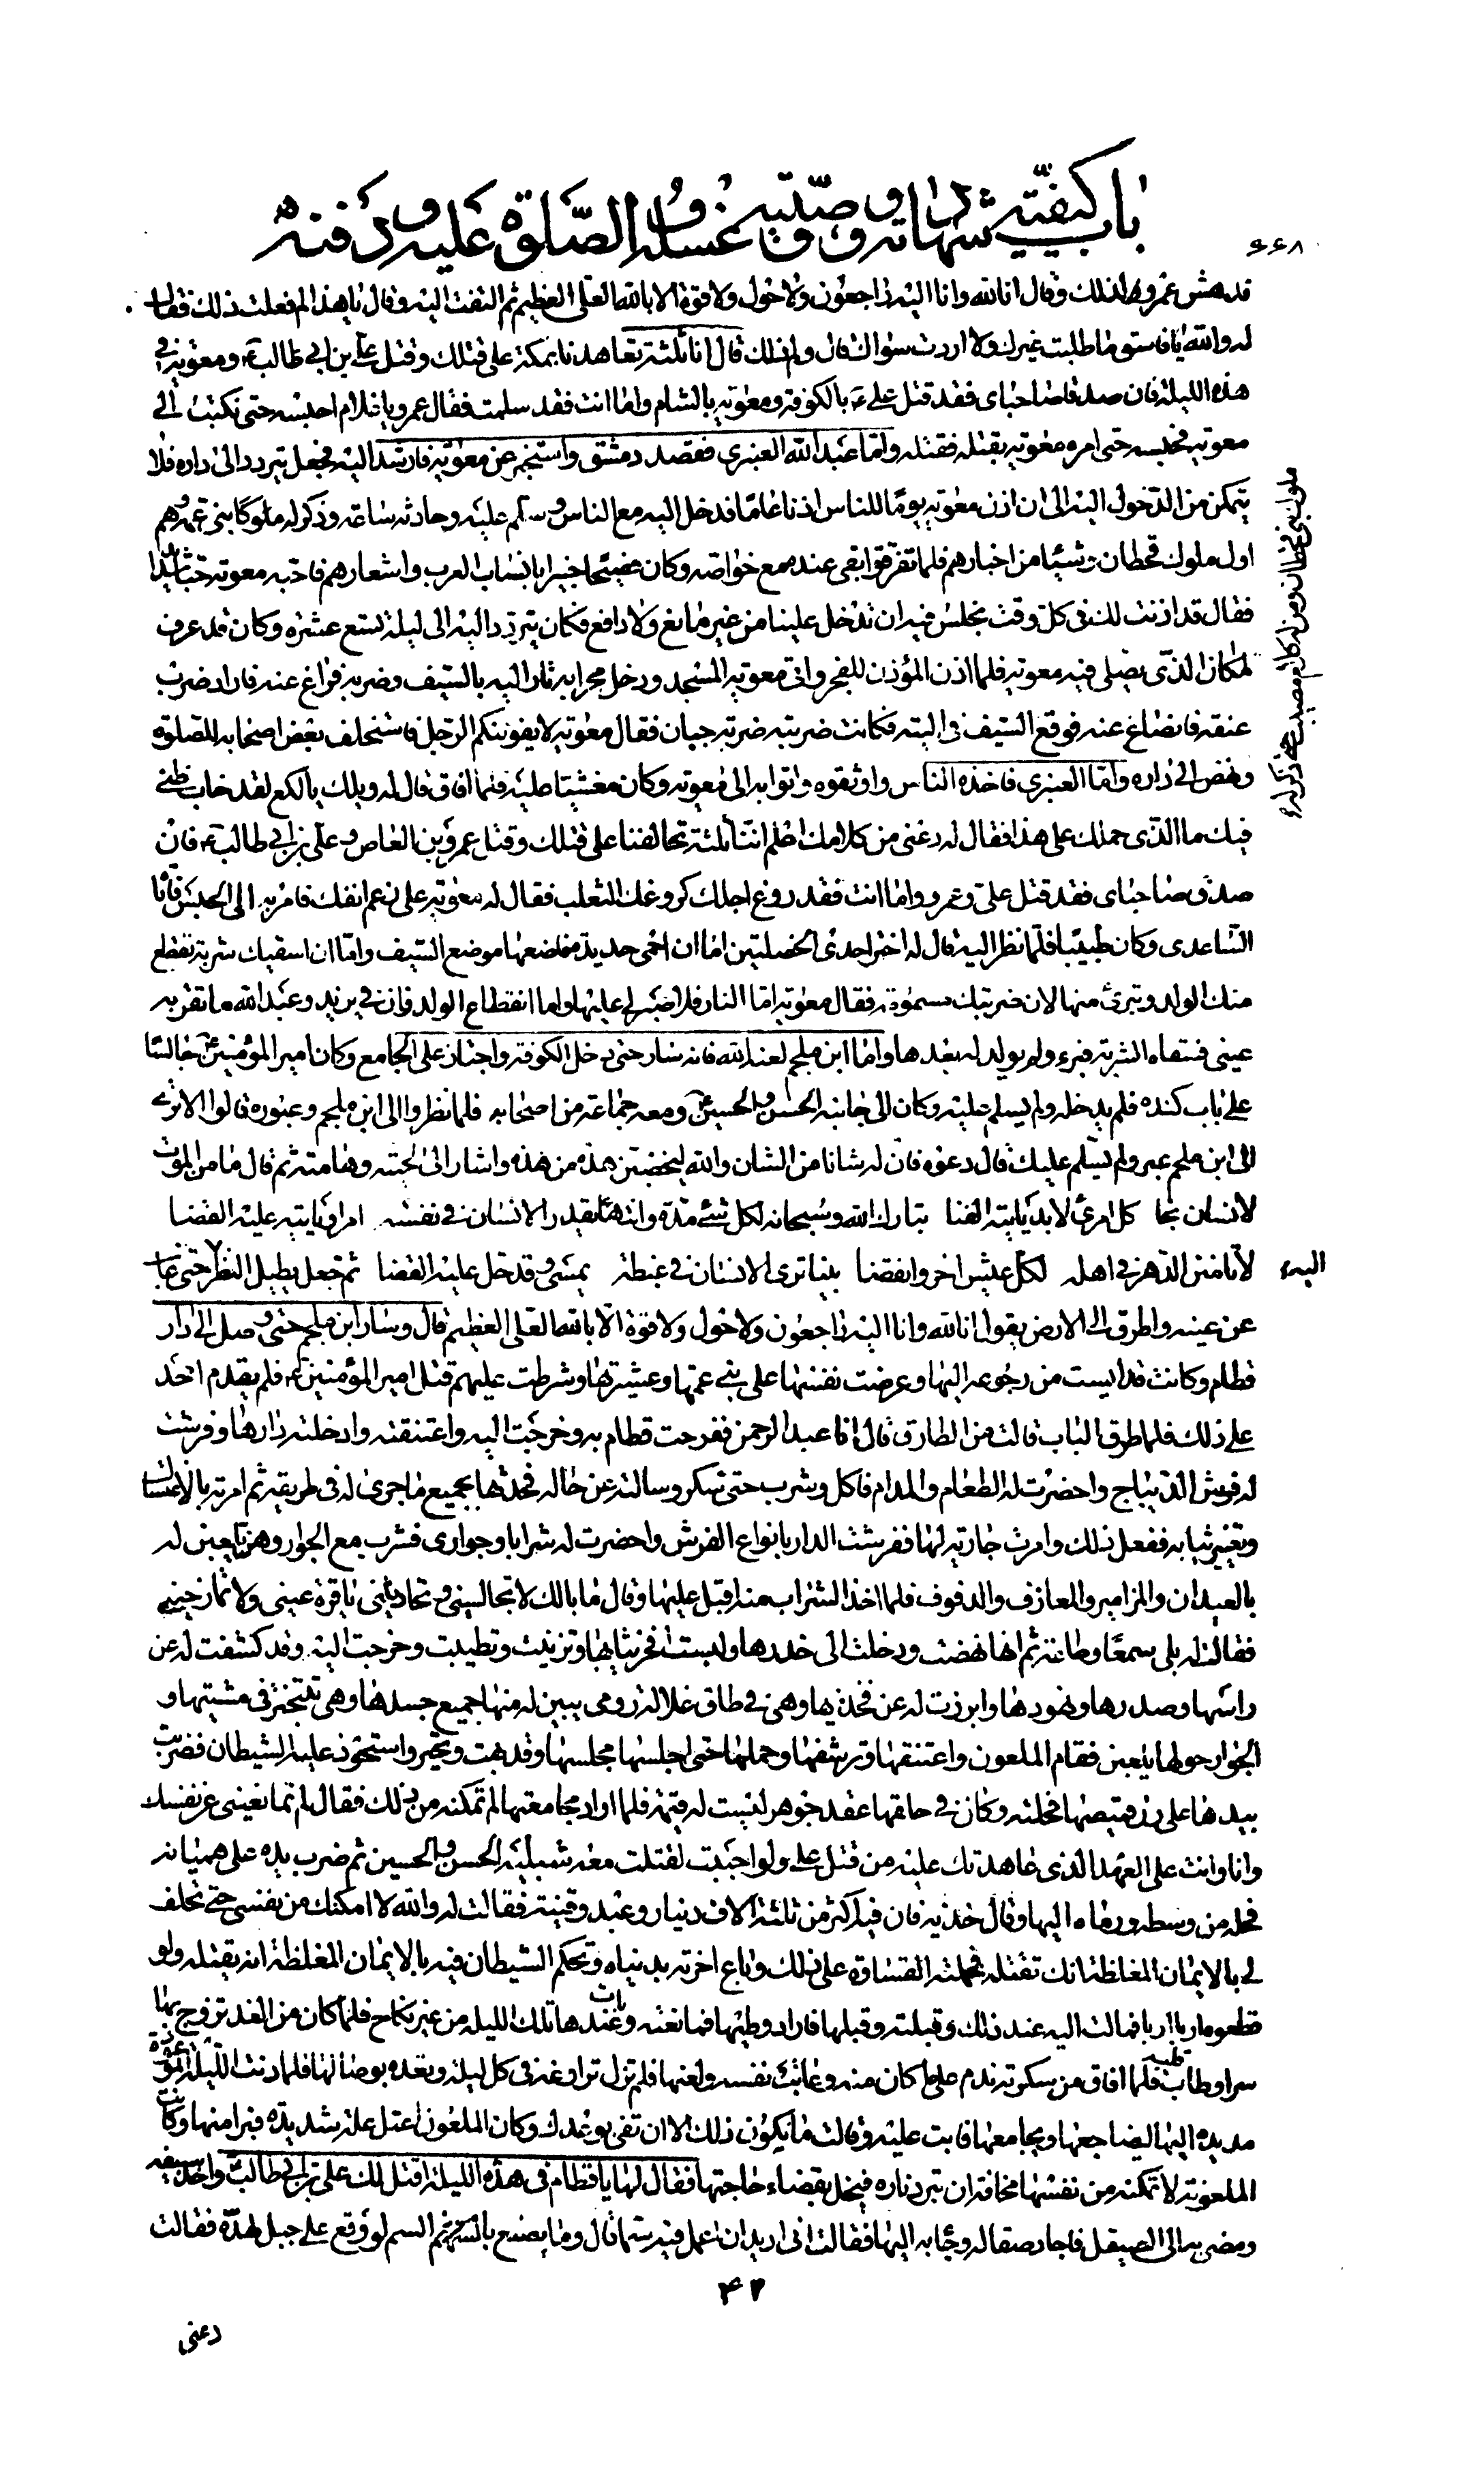 باب كيفية شهادته و وصيته و غسله و الصلوة عليه و دفنه
٦٦٨
قد دهش عمرو لذلك وقال انا لله وانا اليه راجعون ولا حول ولا قوة الا بالله العلى العظيم ثم التفت اليه وقال يا هذا لم فعلت ذلك فقال
له والله يا فاسق ما طلبت غيرك ولا اردت سواك قال ولم ذلك قال انا ثلثة تعاهدنا بمكة على قتلك وقتل على بن ابى طالب ع ومعوية فى
هذه الليلة فان صدقا صاحباى فقد قتل على ع بالكوفة ومعوية بالشام واما انت فقد سلمت فقال عمرو يا غلام احبسه حتى نكتب الى
معوية فحبسه حتى امره معوية بقتله فقتله واما عبد الله العنبرى فقصد دمشق واستخبر عن معوية فارشد اليه فجعل يتردد الى داره فلا
يتمكن من الدخول اليه الى ان اذن معوية يوما للناس اذنا عاما فدخل اليه مع الناس وسلم عليه وحادثه ساعة وذكر له ملوكا بنى عمه وهم
اول ملوك قحطان شيئا من اخبارهم فلما تفرقوا بقى عنده مع خواصه وكان فصيحا خبيرا بانساب العرب واشعارهم فاحبه معوية حبا شديدا
فقال قد اذنت لك فى كل وقت نجلس فيه ان تدخل علينا من غير مانع ولا دافع فكان يتردد اليه الى ليلة تسع عشرة وكان قد عرف
المكان الذى يصلى فيه معوية فلما اذن المؤذن للفجر واتى معوية المسجد ودخل محرابه ثار اليه بالسيف وضربه فراغ عنه فاراد ضرب
عنقه فانصاع عنه فوقع السيف فى اليته فكانت ضربته ضربة جبان فقال معوية لا يفوتنكم الرجل فاستخلف بعض اصحابه للصلوة
ونهض الى داره واما العنبرى فاخذه الناس واوثقوه واتوا به الى معوية وكان مغشيا عليه فلما افاق قال له ويلك يا لكع لقد خاب ظنى
فيك ما الذى حملك على هذا فقال له دعنى من كلامك اعلم اننا ثلثة تحالفنا على قتلك وقتل عمرو بن العاص وعلى بن ابى طالب ع فان
صدق صاحباى فقد قتل على وعمرو واما انت فقد روغ اجلك كروغك الثعلب فقال له معوية على رغم انفك فامر به الى الحبس فاتاه
الساعدى وكان طبيبا فلما نظر اليه قال له اختر احدى الخصلتين اما ان احمى حديدة فاضعها موضع السيف واما ان اسقيك شربة تقطع
منك الولد وتبرئ منها لان ضربتك مسمومة فقال معوية اما النار فلا صبر لى عليها واما انقطاع الولد فان فى يزيد وعبد الله ما تقر به
عينى فسقاه الشربة فبرء ولم يولد له بعدها واما ابن ملجم لعنه الله فانه سار حتى دخل الكوفة واجتاز على الجامع وكان امير المؤمنين ع جالسا
على باب كندة فلم يدخله ولم يسلم عليه وكان الى جانبه الحسن والحسين ع ومعه جماعة من اصحابه فلما نظروا الى ابن ملجم وعبوره قالوا الا ترى
الى ابن ملجم عبر ولم يسلم عليك قال دعوه فان له شانا من الشان والله ليخضبن هذه من هذه واشار الى لحيته وهامته ثم قال ما من الموت
لانسان نجا كل امرئ لا بد ياتيه الفنا تبارك الله وسبحانه لكل شئ مدة وانتها يقدر الانسان فى نفسه امرا وياتيه عليه القضا
لا تامنن الدهر فى اهله لكل عيش اخر وانقضا بينا ترى الانسان فى غبطة يمشى وقد حل عليه القضا ثم جعل يطيل النظر اليه حتى غاب
عن عينه واطرق الى الارض يقول انا لله وانا اليه راجعون ولا حول ولا قوة الا بالله العلى العظيم قال وسار ابن ملجم حتى وصل الى دار
قطام وكانت قد ايست من رجوعه اليها وعرضت نفسها على بنى عمها وعشيرتها وشرطت عليهم قتل امير المؤمنين ع فلم يقدم احد
على ذلك فلما طرق الباب قالت من الطارق قال انا عبد الرحمن ففرحت قطام به وخرجت اليه واعتنقته وادخلته دارها وفرشت
له فرش الديباج واحضرت له الطعام والمدام فاكل وشرب حتى سكر وسالته عن حاله فحدثها بجميع ما جرى له فى طريقه ثم امرته بالاغتسال
وتغيير ثيابه ففعل ذلك وامرت جارية لها ففرشت الدار بانواع الفرش واحضرت له شرابا وجوارى فشرب مع الجوار وهن يلعبن له
بالعيدان والمزامير والمعازف والدفوف فلما اخذ الشراب منه اقبل عليها وقال ما بالك لا تجالسينى وتحادثينى يا قرة عينى ولا تمازحينى
فقالت له بلى سمعا وطاعة ثم انها نهضت ودخلت الى خدرها ولبست افخر ثيابها وتزينت وتطيبت وخرجت اليه وقد كشفت له عن
راسها وصدرها ونهودها وابرزت له عن فخذيها وهى فى طاق غلالة رومى يبين له منها جميع جسدها وهى تتبختر فى مشيتها و
الجوار حولها يلعبن فقام الملعون واعتنقها وترشفها وحملها حتى اجلسها مجلسها وقد بهت وتحير واستحوذ عليه الشيطان فضربت
بيدها على زر قميصها فحلته وكان فى حلقها عقد جوهر ليست له قيمة فلما اراد مجامعتها لم تمكنه من ذلك فقال لم تمانعينى عن نفسك
وانا وانت على العهد الذى عاهدتك عليه من قتل على ولو احببت لقتلت معه شبليه الحسن والحسين ثم ضرب يده على هميانه
فحله من وسطه ورماه اليها وقال خذيه فان فيه اكثر من ثلثة الاف دينار وعبد وقينة فقالت له والله لا امكنك من نفسى حتى تحلف
لى بالايمان المغلظة انك تقتله فحملته القساوة على ذلك وباع اخرته بدنياه وتحكم الشيطان فيه بالايمان المغلظة انه يقتله ولو
قطعوه اربا اربا فمالت اليه عند ذلك وقبلته وقبلها فاراد وطيها فمانعته وبات عندها تلك الليلة من غير نكاح فلما كان من الغد تزوج بها
سرا وطاب قلبه فلما افاق من سكرته ندم على ما كان منه وعاتب نفسه ولعنها فلم تزل تراوغه فى كل ليلة وتعده بوصالها فلما دنت الليلة الموعودة
مد يده اليها ليضاجعها ويجامعها فابت عليه وقالت ما يكون ذلك الا ان تفى بوعدك وكان الملعون اعتل علة شديدة فبرا منها وكانت
الملعونة لا تمكنه من نفسها مخافة ان تبرد ناره فيخل بقضاء حاجتها فقال لها يا قطام فى هذه الليلة اقتل لك على بن ابى طالب واخذ سيفه
ومضى به الى الصيقل فاجاد صقاله وجاء به اليها فقالت انى اريد ان اعمل فيه سما قال وما يصنع بالسم السم لو وقع على جبل لهده فقالت
٤٢
دعنى